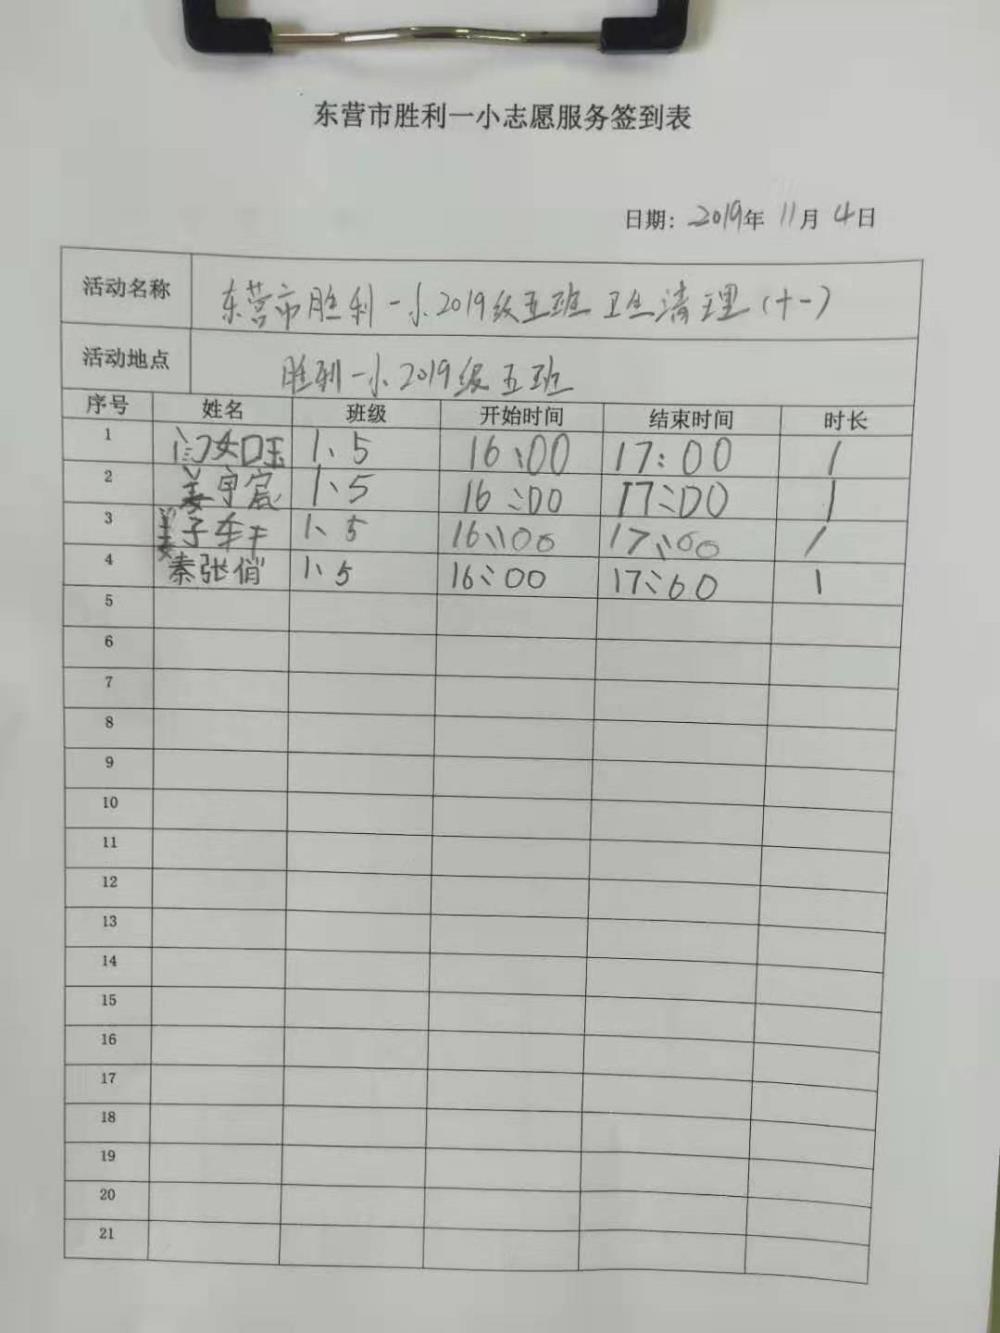 东营市胜利一小志愿服务签到表
日期: 2019年 11月 4日
活动名称 东营市胜利一小2019级五班 卫生清理(十一)
活动地点 胜利一小2019级五班
序号 姓名 班级 开始时间 结束时间 时长
1 闫如玉 1、5 16:00 17:00 1
2 姜宇宸 1、5 16:00 17:00 1
3 姜子 1、5 16:00 17:00 1
4 秦张俏 1、5 16:00 17:60 1
5
6
7
8
9
10
11
12
13
14
15
16
17
18
19
20
21